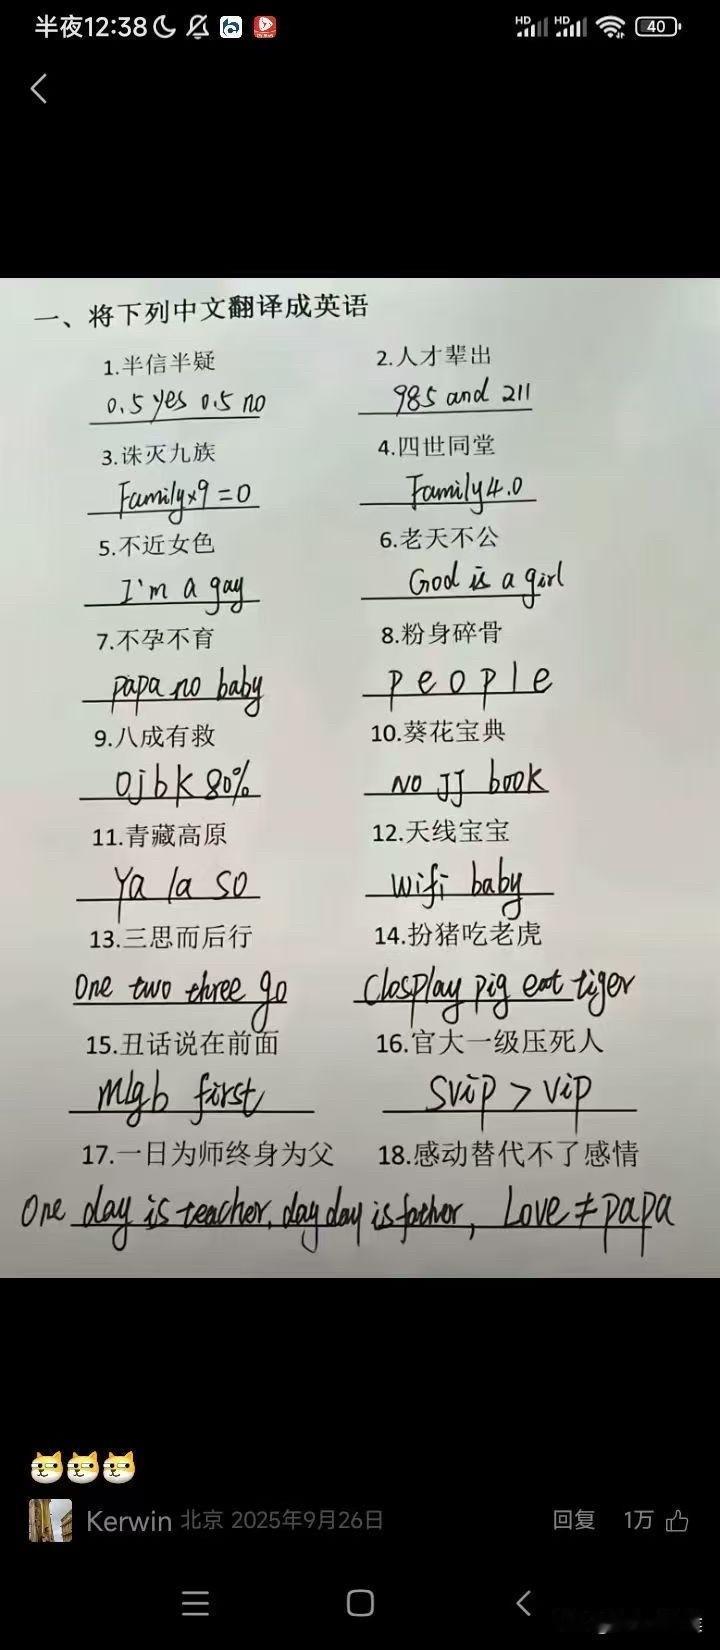 半夜12:38
HD HD 40
一、将下列中文翻译成英语
1.半信半疑 2.人才辈出
0.5 yes 0.5 no 985 and 211
3.诛灭九族 4.四世同堂
Family×9=0 Family4.0
5.不近女色 6.老天不公
I'm a gay God is a girl
7.不孕不育 8.粉身碎骨
papa no baby p e o p l e
9.八成有救 10.葵花宝典
ojbk 80% NO JJ book
11.青藏高原 12.天线宝宝
Ya la so wifi baby
13.三思而后行 14.扮猪吃老虎
One two three go Closplay pig eat tiger
15.丑话说在前面 16.官大一级压死人
mlgb first SViP > ViP
17.一日为师终身为父 18.感动替代不了感情
One day is teacher, day day is father, Love ≠ papa
Kerwin 北京 2025年9月26日 回复 1万